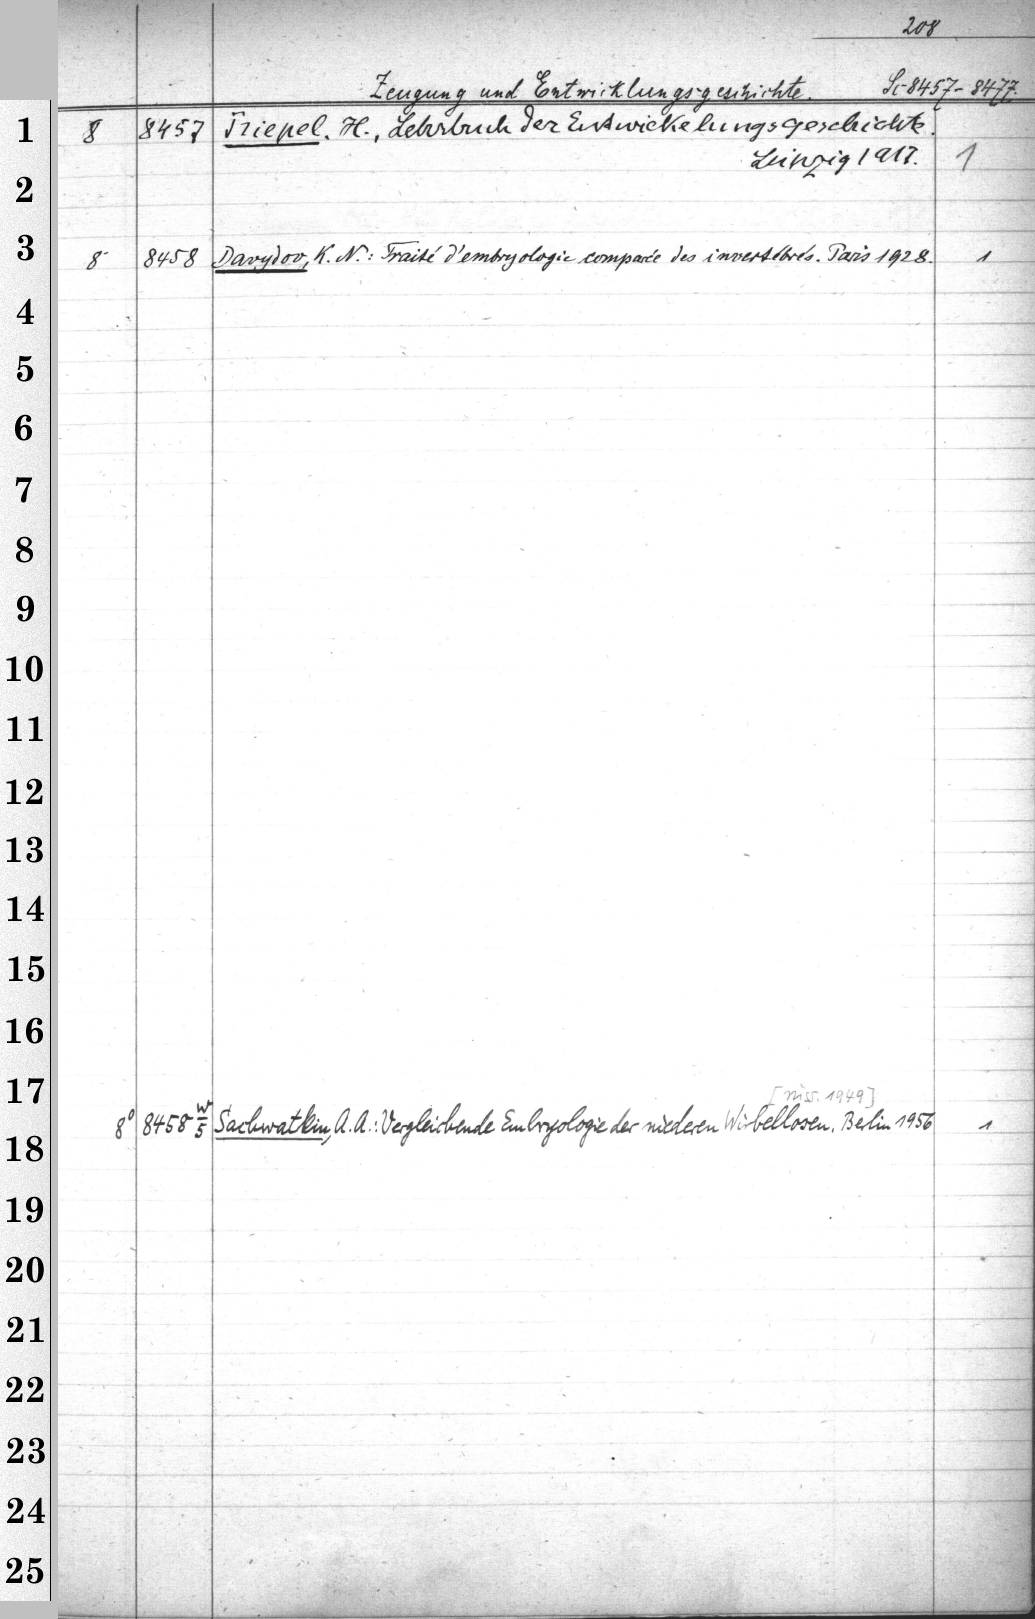 208
Zeugung und Entwicklungsgeschichte. Lc 8457-8477.
1 8 8457 Triepel. H., Lehrbuch der Entwickelungsgeschichte.
Leipzig 1917. 1
2
3 8 8458 Davydov, K. N.: Traité d'embryologie comparée des invertébrés. Paris 1928. 1
4
5
6
7
8
9
10
11
12
13
14
15
16
17
[russ. 1949]
8° 8458 W/5 Sachwatkin, A. A.: Vergleichende Embryologie der niederen Wirbellosen. Berlin 1956 1
18
19
20
21
22
23
24
25